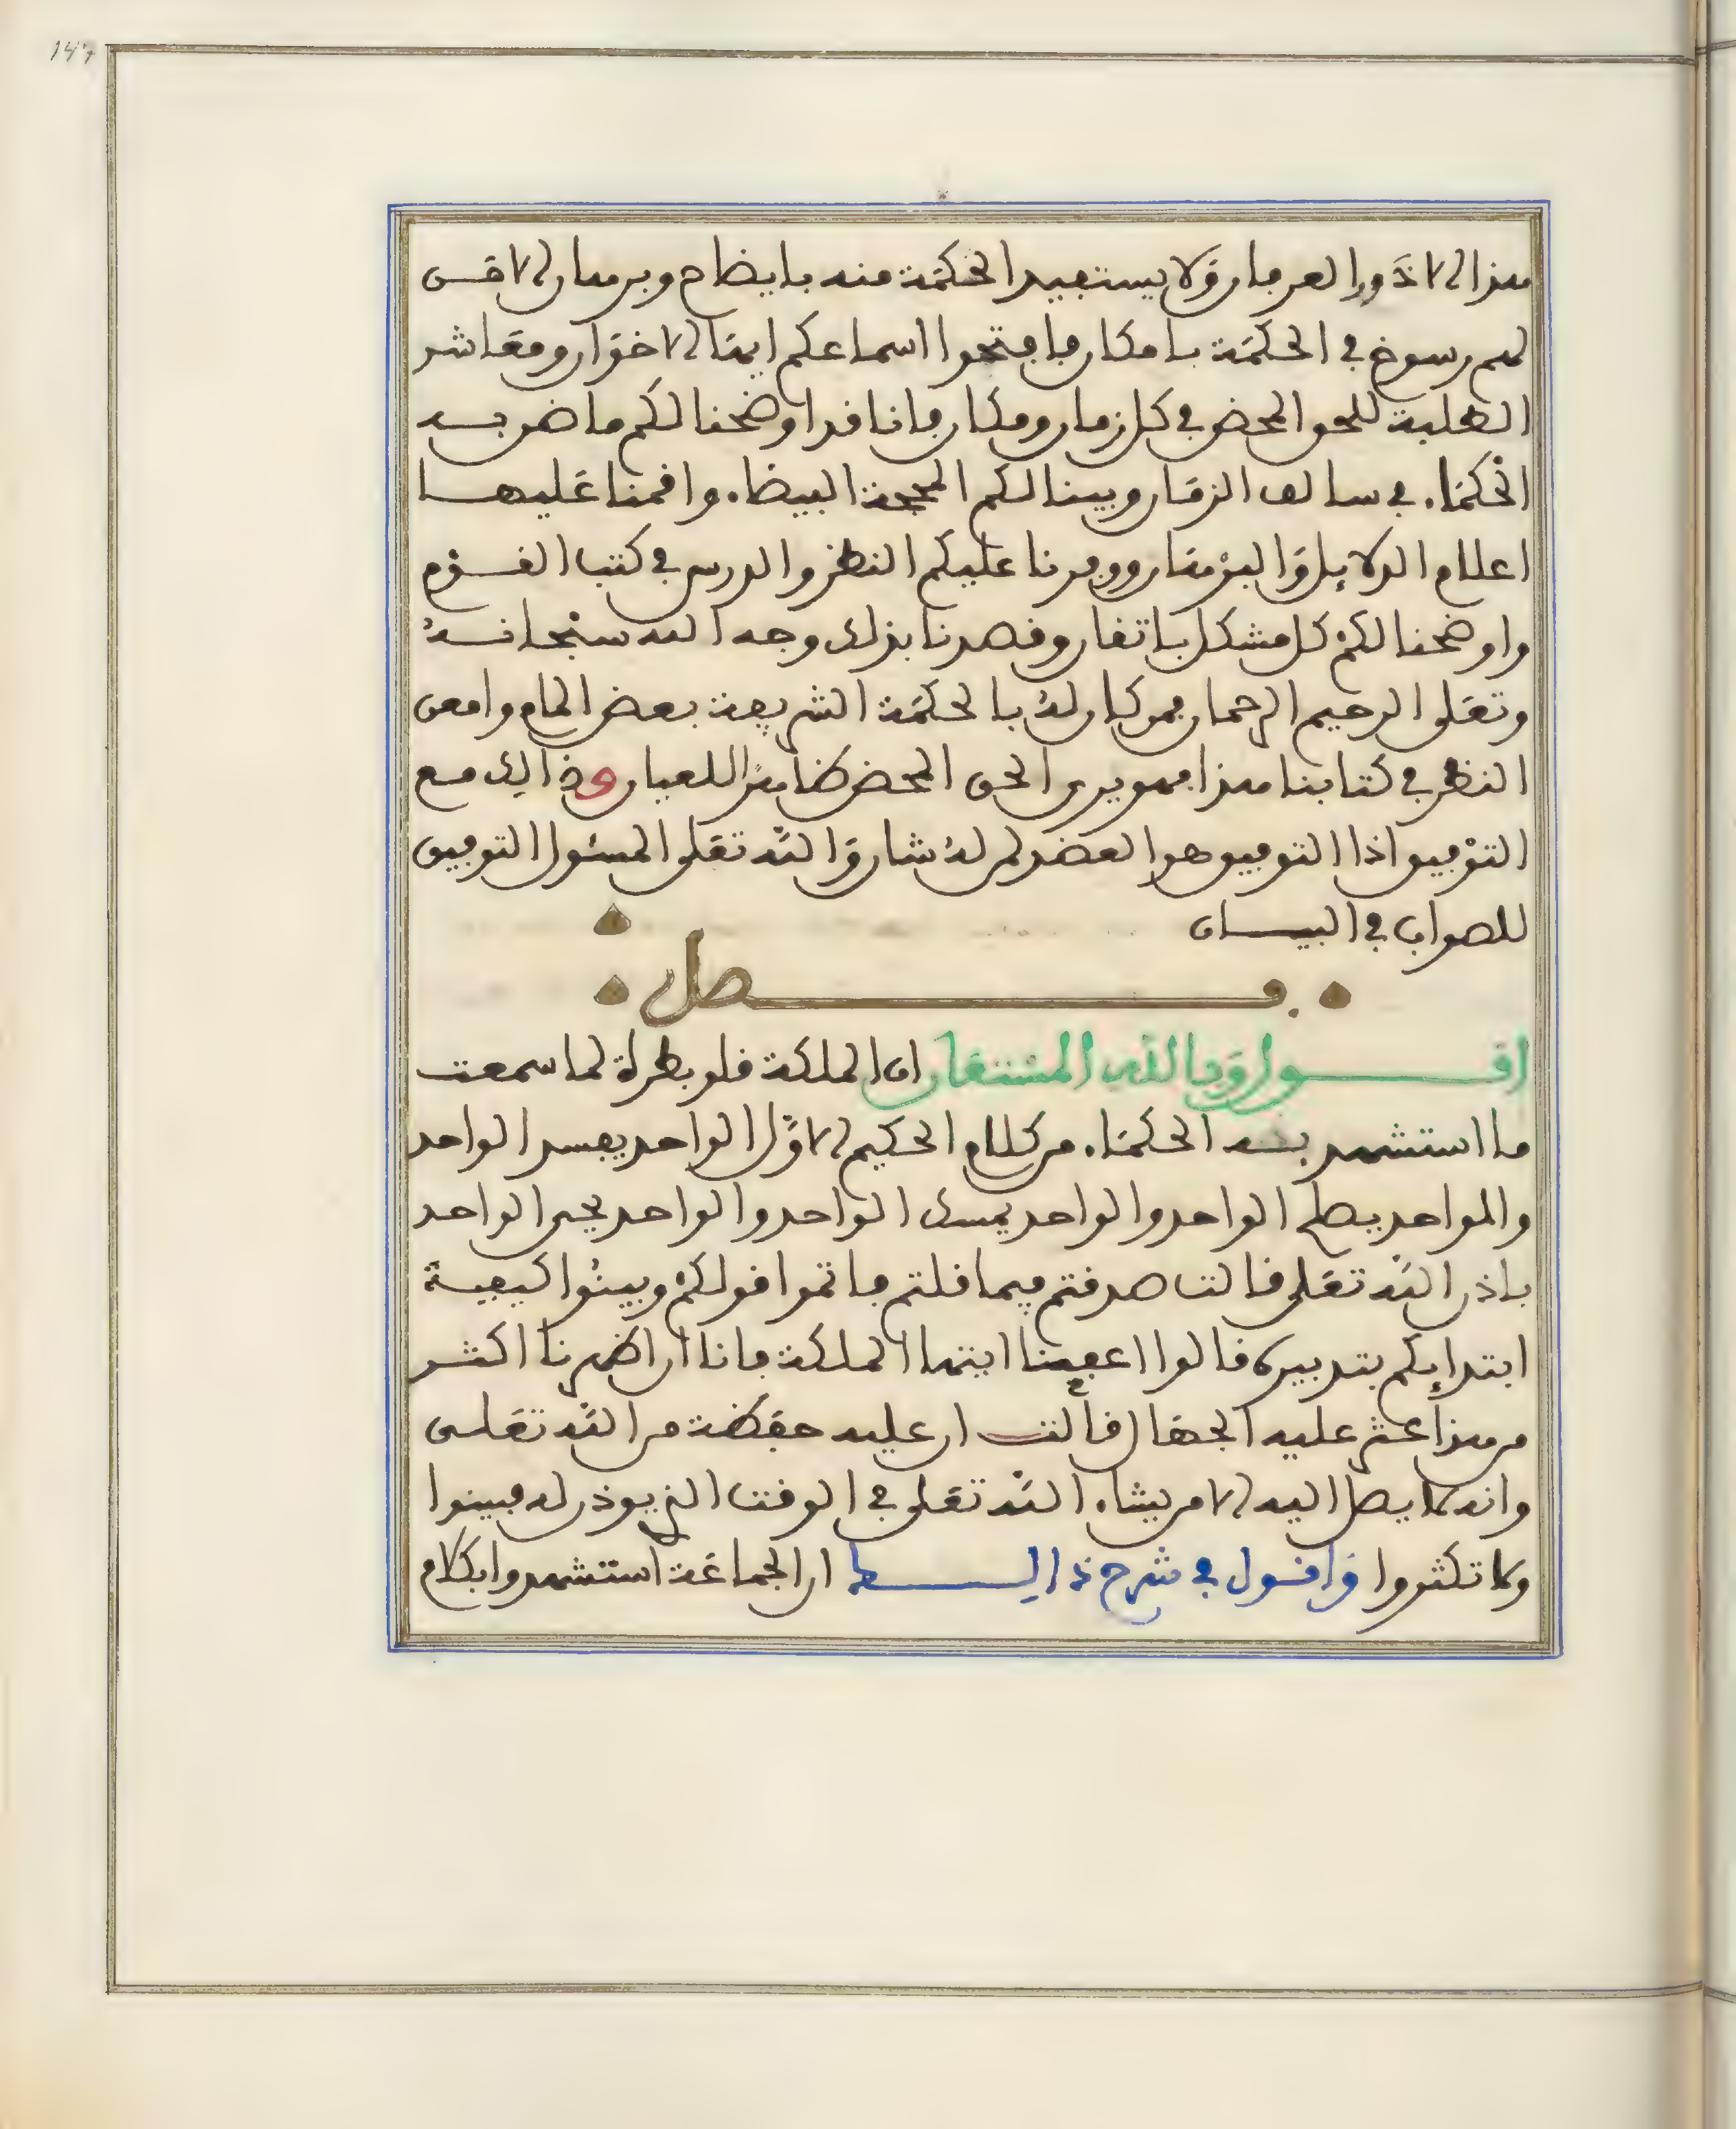 هذا إلا ذوا العرفان ولا يستفيد الحكمة منه بايضاح وبرهان الا من
لهم رسوخ في الحكمة بامكان فافتحوا اسماعكم ايها الاخوان ومعاشر
الطلبة للحق المحض في كل زمان ومكان فانا قد اوضحنا لكم ما ضن به
الحكماء في سالف الزمان وبينا لكم المحجة البيضاء واقمنا عليها
اعلام الدلايل والبرهان ووفرنا عليكم النظر والدرس في كتب القوم
واوضحنا لكم كل مشكل باتقان وقصدنا بذلك وجه الله سبحانه
وتعلى الرحيم الرحمان فمن كان له بالحكمة الشريفة بعض إلمام وامعن
النظر في كتابنا هذا فهو يرى الحق المحض ظاهرا للعيان وذالك مع
التوفيق اذا التوفيق هو العضد لمن له شان والله تعلى المسئول التوفيق
للصواب في البيان
فصل
اقول وبالله المستعان ان الملكة قلوبطرة لما سمعت
ما استشهد به الحكماء من كلام الحكيم الاول الواحد يفسد الواحد
والواحد يصلح الواحد والواحد يمسك الواحد والواحد يحيي الواحد
باذن الله تعلى قالت صدقتم فيما قلتم فاتموا قولكم وبينوا كيفية
ابتدايكم بتدبيره قالوا اعفينا ايتها الملكة فانا ان اظهرنا اكثر
من هذا عثر عليه الجهال قالت ان عليه حفظة من الله تعلى
وانه لا يصل اليه الا من يشاء الله تعلى في الوقت الذي يوذن له فبينوا
ولا تكثروا واقول في شرح ذالك ان الجماعة استشهدوا بكلام